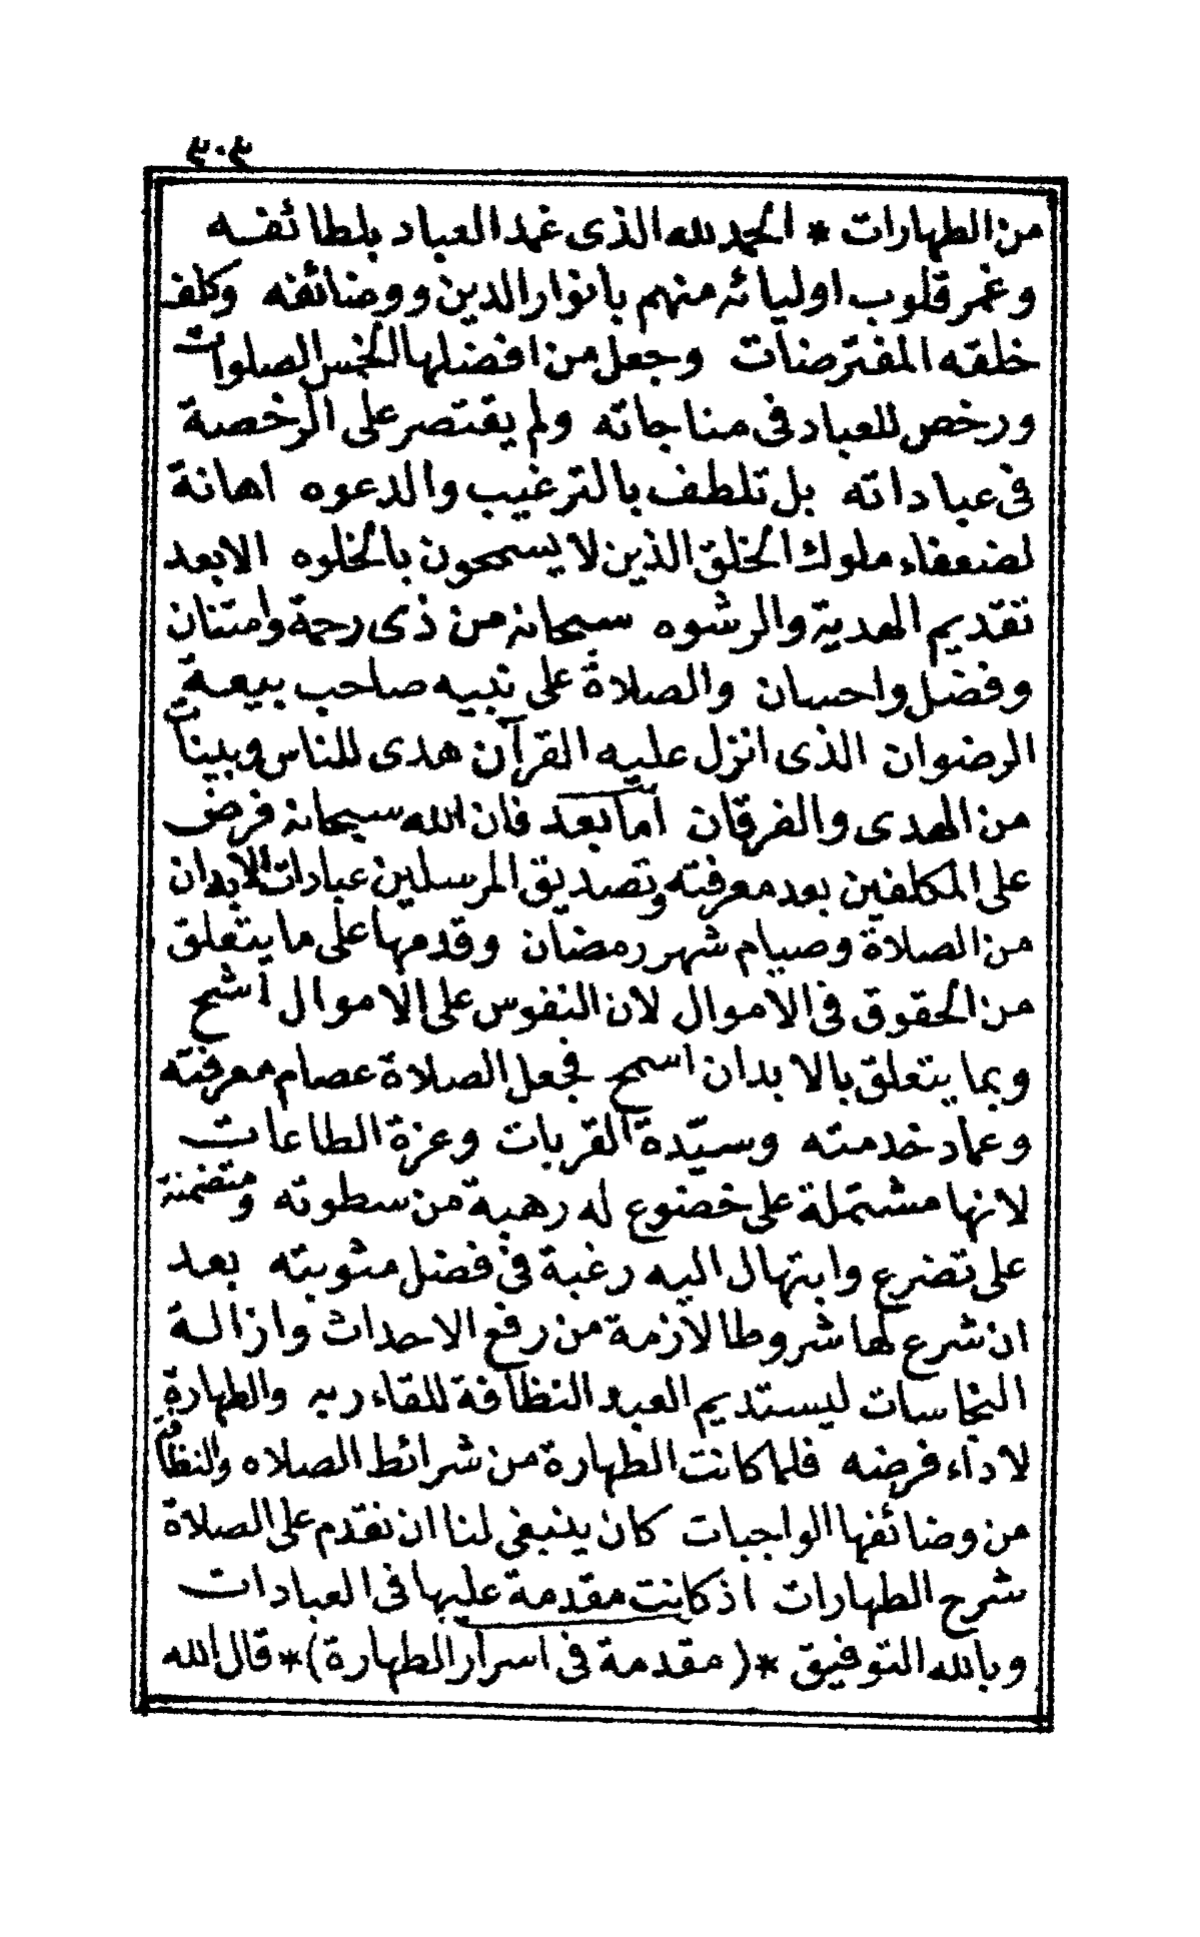 ٤٠٤
من الطهارات * الحمد لله الذى غمد العباد بلطائفه
وغمر قلوب اوليائه منهم بانوار الدين ووضائفه وكلف
خلقه المفترضات وجعل من افضلها الخمس الصلوات
ورخص للعباد فى مناجاته ولم يقتصر على الرخصة
فى عباداته بل تلطف بالترغيب والدعوه اهانة
لضعفاء ملوك الخلق الذين لا يسمحون بالخلوه الا بعد
تقديم الهدية والرشوه سبحانه من ذى رحمة وامتنان
وفضل واحسان والصلاة على نبيه صاحب بيعة
الرضوان الذى انزل عليه القرآن هدى للناس وبينات
من الهدى والفرقان أما بعد فان الله سبحانه فرض
على المكلفين بعد معرفته وتصديق المرسلين عبادات الابدان
من الصلاة وصيام شهر رمضان وقدمها على ما يتعلق
من الحقوق فى الأموال لان النفوس على الاموال أشح
وبما يتعلق بالابدان اسمح فجعل الصلاة عصام معرفته
وعماد خدمته وسيّدة القربات وعزة الطاعات
لانها مشتملة على خضوع له رهبة من سطوته ومتضمنة
على تضرع وابتهال اليه رغبة فى فضل مثوبته بعد
ان شرع لها شروطا لازمة من رفع الاحداث وازالة
النجاسات ليستديم العبد النظافة للقاء ربه والطهارة
لاداء فرضه فلما كانت الطهارة من شرائط الصلاه والنظافة
من وضائفها الواجبات كان ينبغى لنا ان نقدم على الصلاة
شرح الطهارات اذ كانت مقدمة عليها فى العبادات
وبالله التوفيق *( مقدمة فى اسرار الطهارة )* قال الله